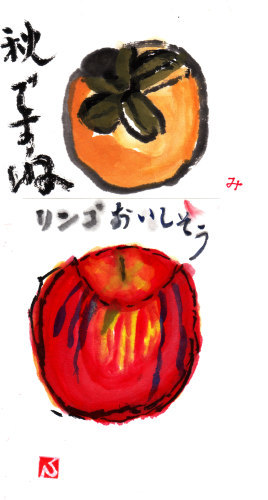 秋ですね
み
リンゴ おいしそう
ふ